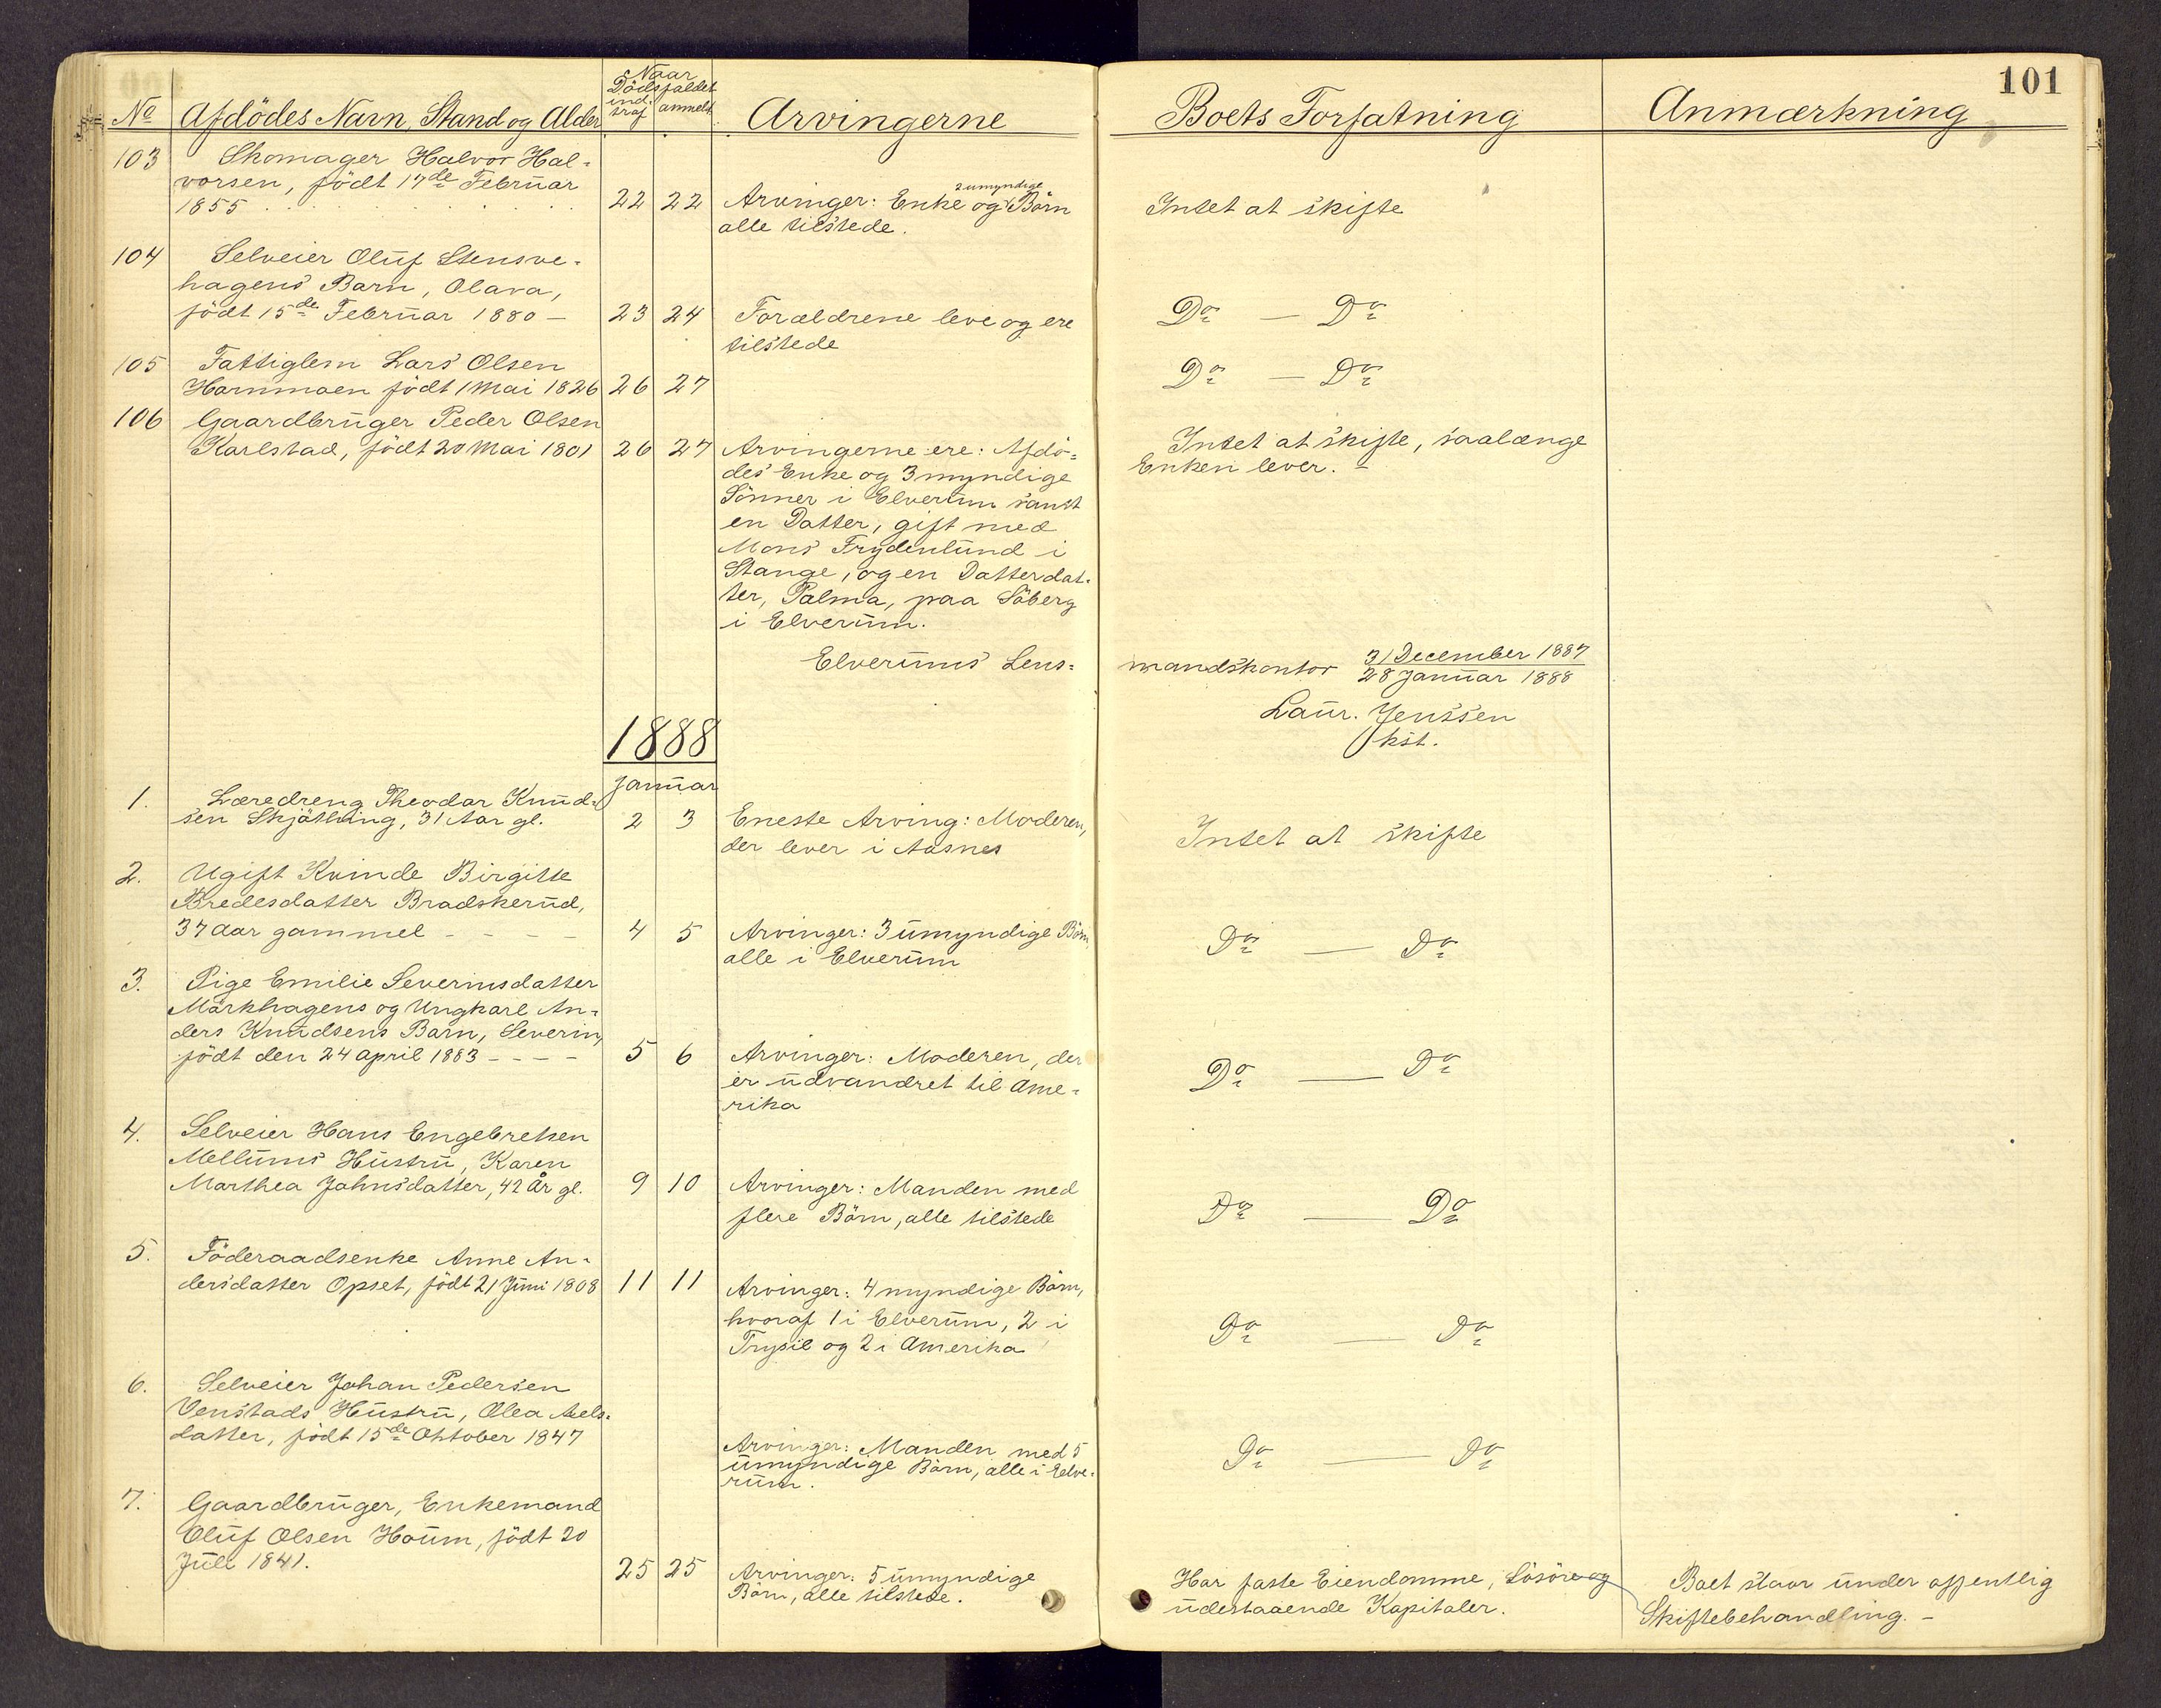 101
Naar
Dödsfaldet
ind- anmeldt
traf
No Afdödes Navn, Stand og Alder Arvingerne Boets Forfatning Anmærkning
103 Skomager Halvor Hal-
vorsen, födt 17de Februar
2 umyndige
1855 22 22 Arvinger: Enke og Börn Intet at skifte
alle tilstede.
104 Selveier Oluf Stensve-
hagens Barn, Olava,
födt 15de Februar 1880 — 23 24 Forældrene leve og ere Do — Do
tilstede
105 Fattiglem Lars Olsen
Hammoen födt 1 Mai 1826 26 27 Do — Do
106 Gaardbruger Peder Olsen
Karlstad, födt 20 Mai 1801 26 27 Arvingerne ere: Afdö- Intet at skifte, saalænge
des Enke og 3 myndige Enken lever. —
Sönner i Elverum samt
en Datter, gift med
Mons Frydenlund i
Stange, og en Datterdat-
ter, Palma, paa Söberg
i Elverum.
Elverums Lens- mandskontor 31 December 1887
28 Januar 1888
Laur. Jenssen
kst.
1888
Januar
1. Læredreng Theodor Knud-
sen Skjötling, 31 Aar gl. 2 3 Eneste Arving: Moderen, Intet at skifte
der lever i Aasnes
2. Ugift Kvinde Birgitte
Bredesdatter Bradskerud,
37 Aar gammel - - - 4 5 Arvinger: 3 umyndige Börn Do — Do
alle i Elverum
3. Pige Emilie Severinsdatter
Mörkhagens og Ungkarl An-
ders Knudsens Barn, Severin,
födt den 24 April 1883 - - - - 5 6 Arvinger: Moderen, der Do — Do
er udvandret til Ame-
rika
4. Selveier Hans Engebretsen
Mellums Hustru, Karen
Marthea Johnsdatter, 42 År gl. 9 10 Arvinger: Manden med Do — Do
flere Börn, alle tilstede
5. Föderaadsenke Anne An-
dersdatter Opset, födt 21 Juni 1808 11 11 Arvinger: 4 myndige Börn,
hvoraf 1 i Elverum, 2 i Do — Do
Trysil og 2 i Amerika
6. Selveier Johan Pedersen
Venstads Hustru, Olea Axels-
datter, födt 15de Oktober 1847 Arvinger: Manden med 5 Do — Do
umyndige Börn, alle i Elve-
rum.
7. Gaardbruger, Enkemand
Oluf Olsen Houm, födt 20
Juli 1841. 25 25 Arvinger: 5 umyndige Har faste Eiendomme, Lösöre og Boet staar under offentlig
Börn, alle tilstede. udestaaende Kapitaler. Skiftebehandling. —